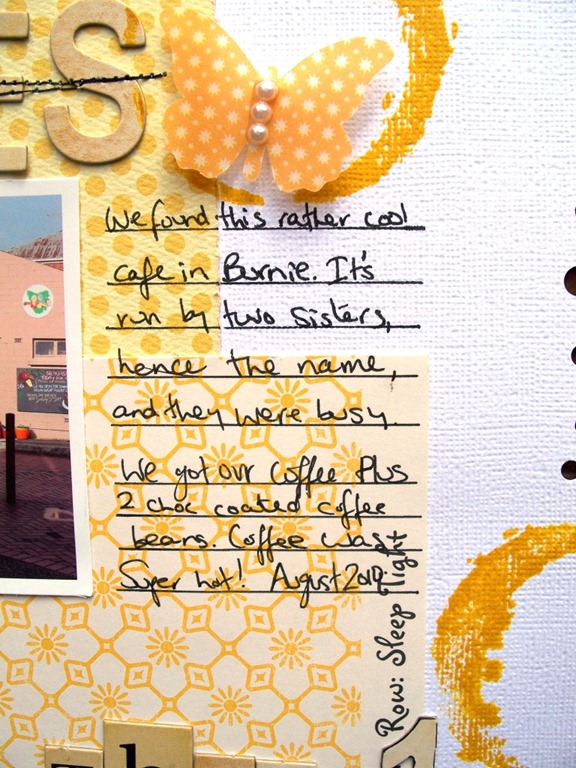 ES
We found this rather cool
cafe in Burnie. It's
run by two sisters,
hence the name,
and they were busy.
We got our coffee Plus
2 choc coated coffee
bears. Coffee was
Super hot! August
Row: Sleep Tight